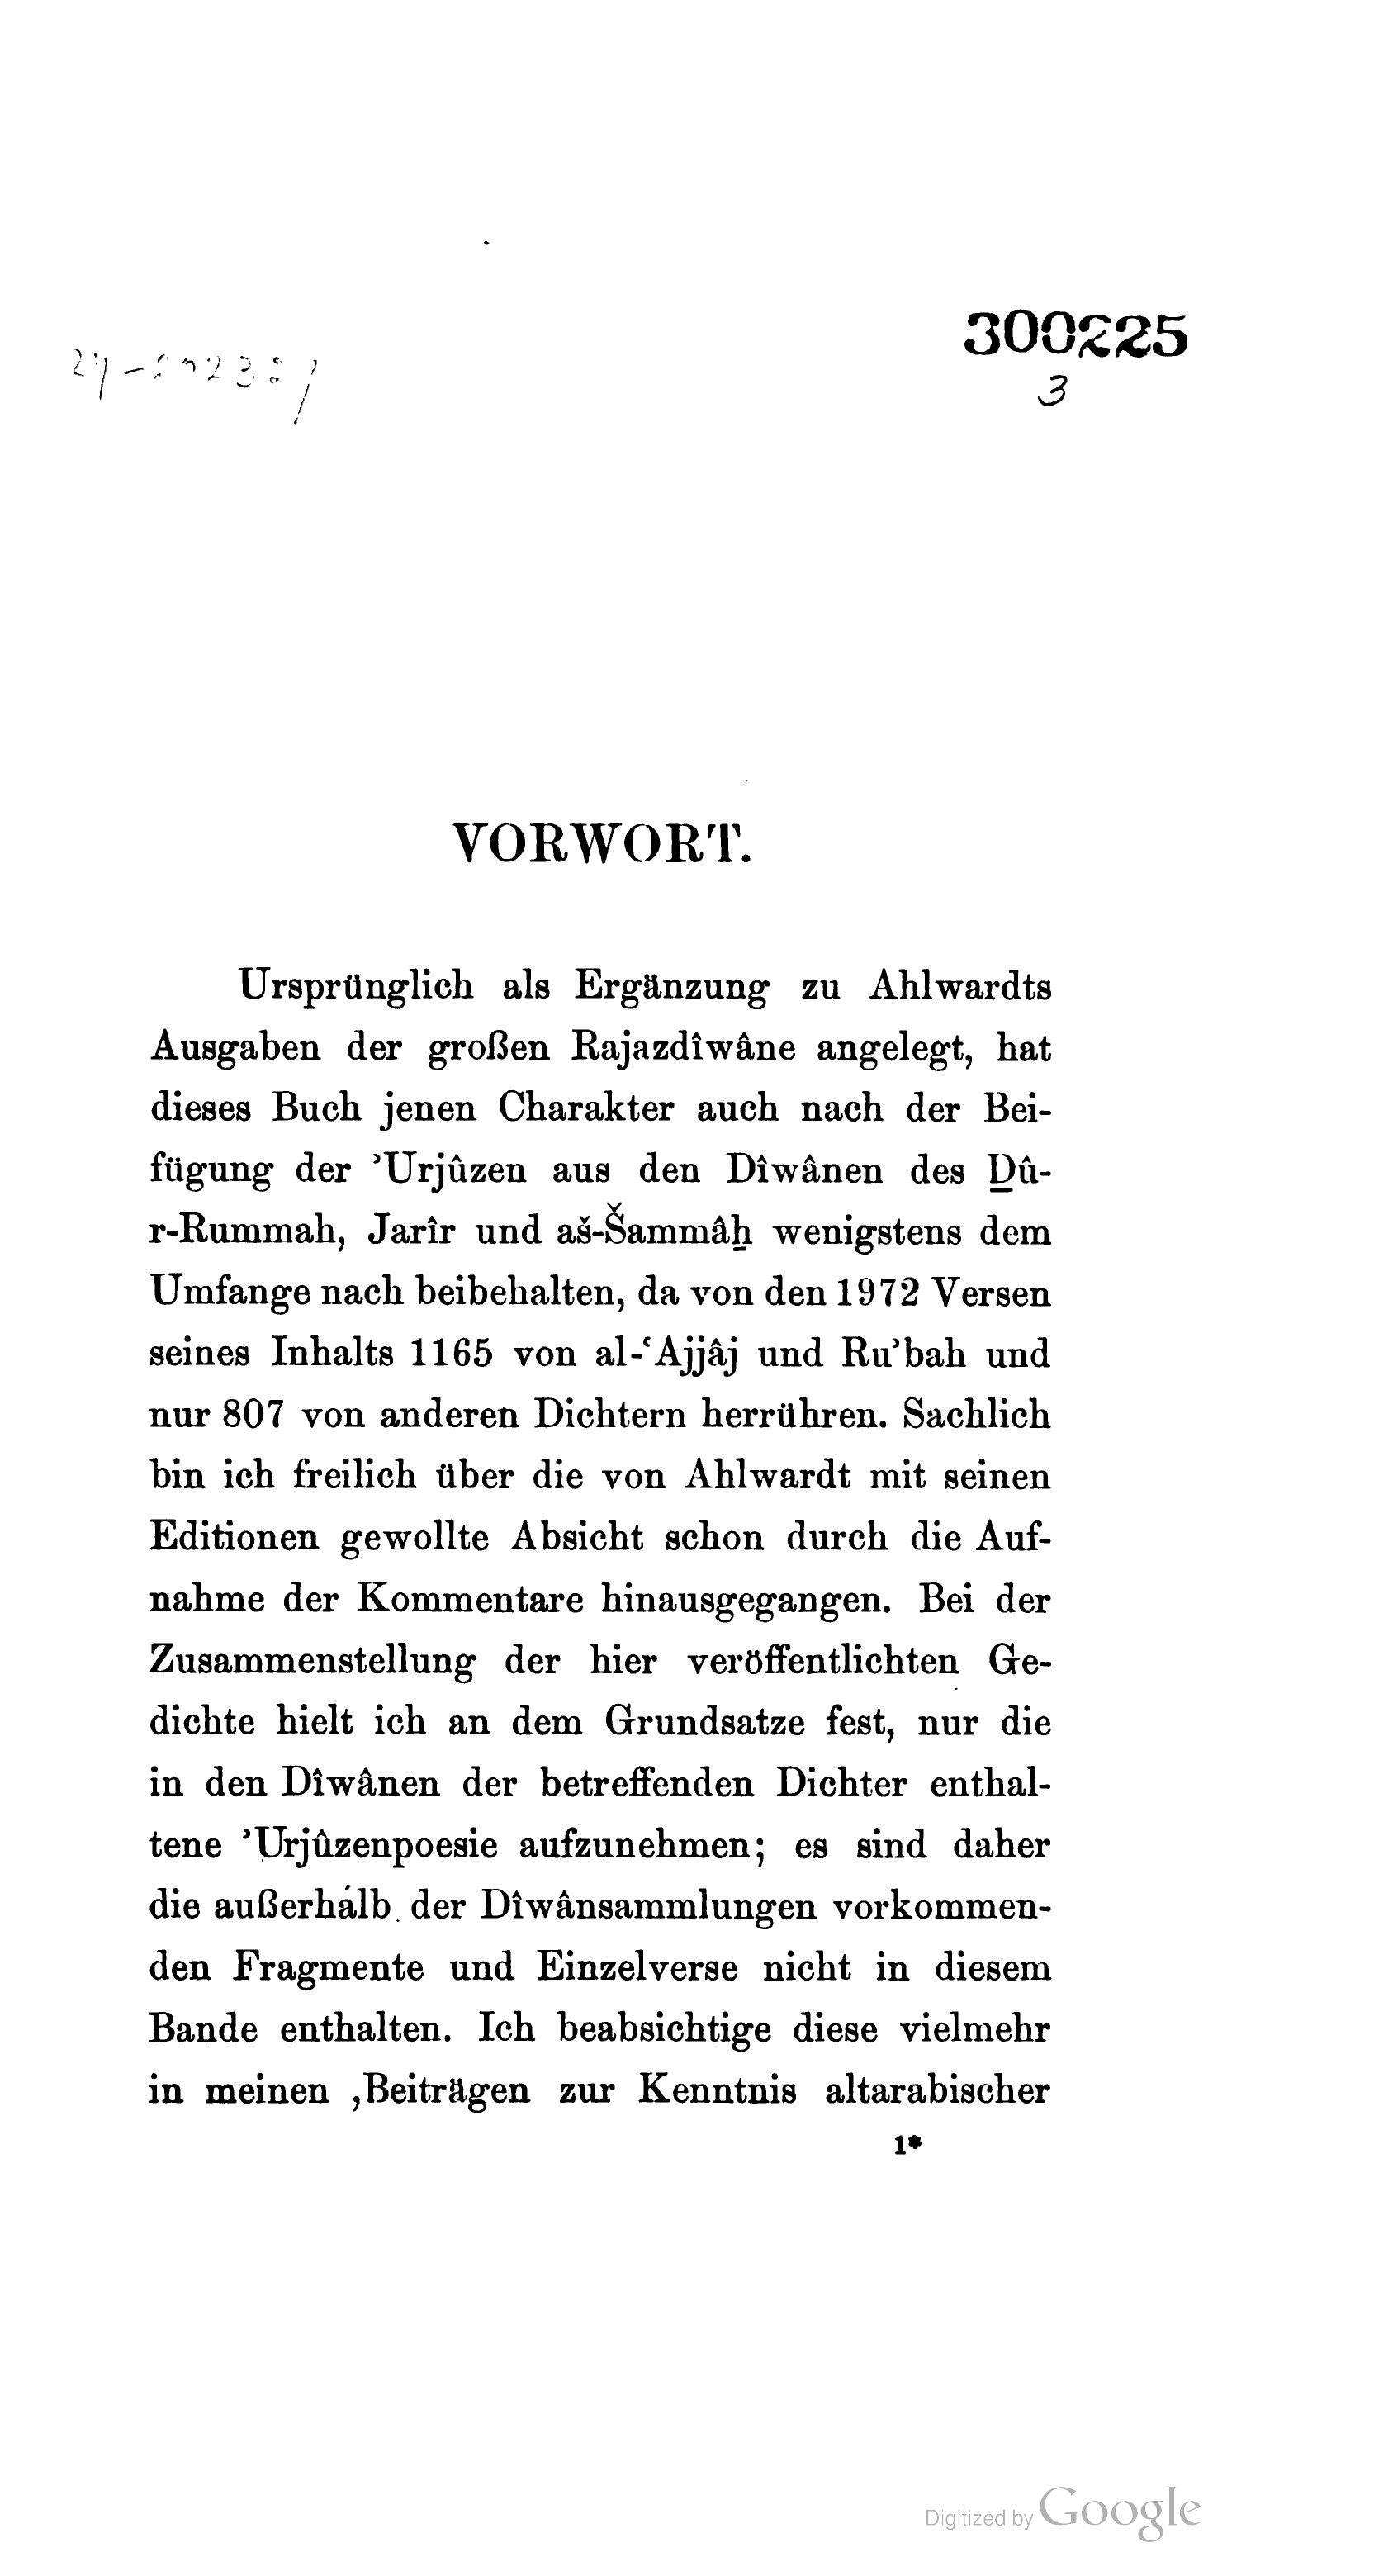 300225
3
VORWORT.
Ursprünglich als Ergänzung zu Ahlwardts
Ausgaben der großen Rajazdîwâne angelegt, hat
dieses Buch jenen Charakter auch nach der Bei-
fügung der ’Urjûzen aus den Dîwânen des Ḏû-
r-Rummah, Jarîr und aš-Šammâẖ wenigstens dem
Umfange nach beibehalten, da von den 1972 Versen
seines Inhalts 1165 von al-‘Ajjâj und Ru’bah und
nur 807 von anderen Dichtern herrühren. Sachlich
bin ich freilich über die von Ahlwardt mit seinen
Editionen gewollte Absicht schon durch die Auf-
nahme der Kommentare hinausgegangen. Bei der
Zusammenstellung der hier veröffentlichten Ge-
dichte hielt ich an dem Grundsatze fest, nur die
in den Dîwânen der betreffenden Dichter enthal-
tene ’Urjûzenpoesie aufzunehmen; es sind daher
die außerhalb der Dîwânsammlungen vorkommen-
den Fragmente und Einzelverse nicht in diesem
Bande enthalten. Ich beabsichtige diese vielmehr
in meinen ‚Beiträgen zur Kenntnis altarabischer
1*
Digitized by Google